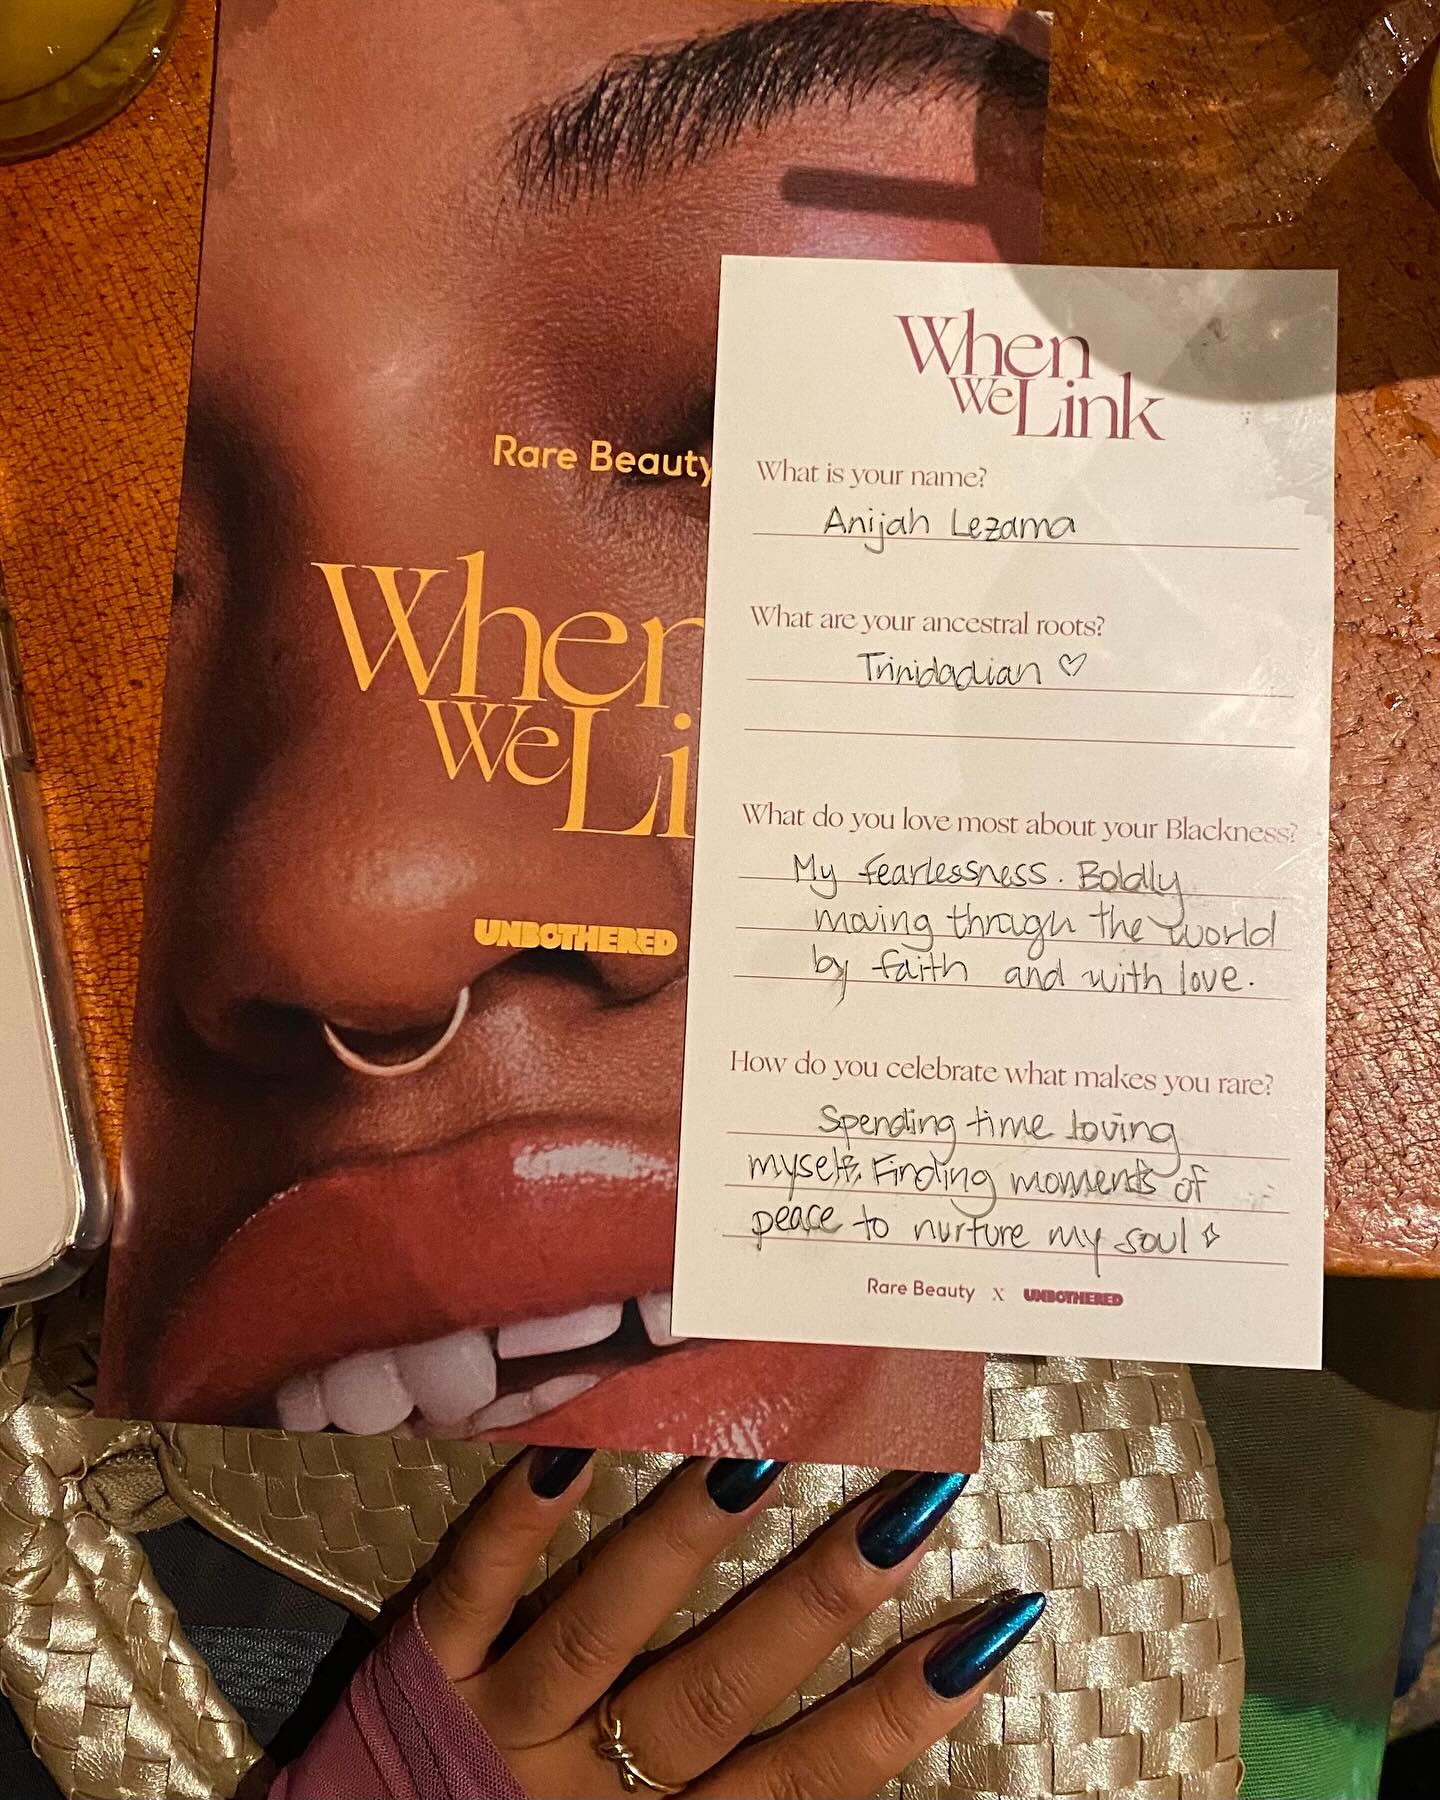 Rare Beauty
When
We Li
UNBOTHERED
When
We Link
What is your name?
Anijah Lezama
What are your ancestral roots?
Trinidadian ♡
What do you love most about your Blackness?
My fearlessness. Boldly
moving through the world
by faith and with love.
How do you celebrate what makes you rare?
Spending time loving
myself. Finding moments of
peace to nurture my soul ✧
Rare Beauty X UNBOTHERED